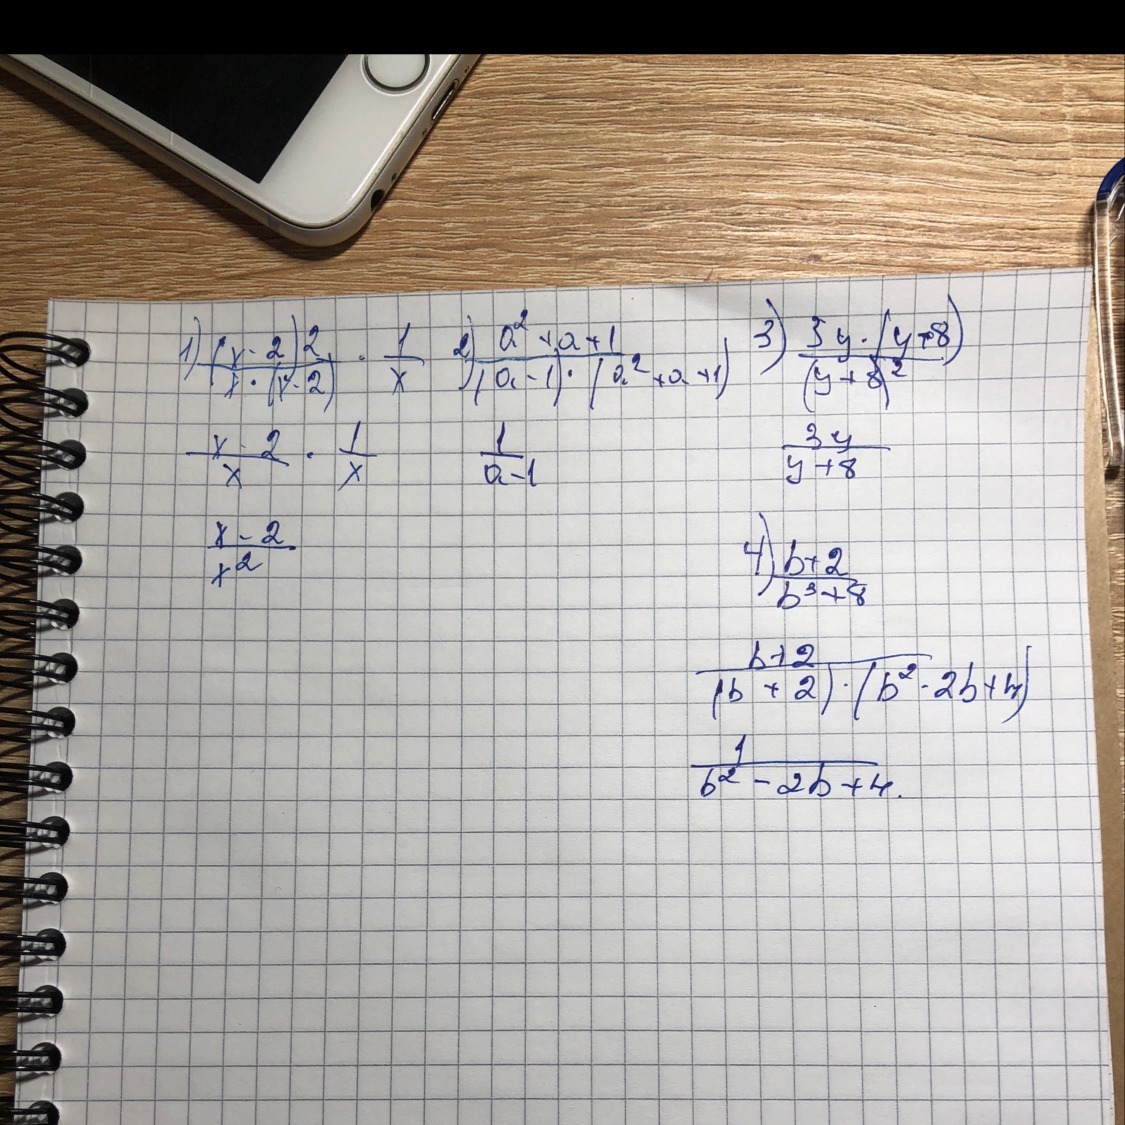 1) (x-2)²/(x·(x-2)) · 1/x
(x-2)/x · 1/x
(x-2)/x²
2) (a²+a+1)/((a-1)·(a²+a+1))
1/(a-1)
3) (3y·(y+8))/(y+8)²
3y/(y+8)
4) (b+2)/(b³+8)
(b+2)/((b+2)·(b²-2b+4))
1/(b²-2b+4).